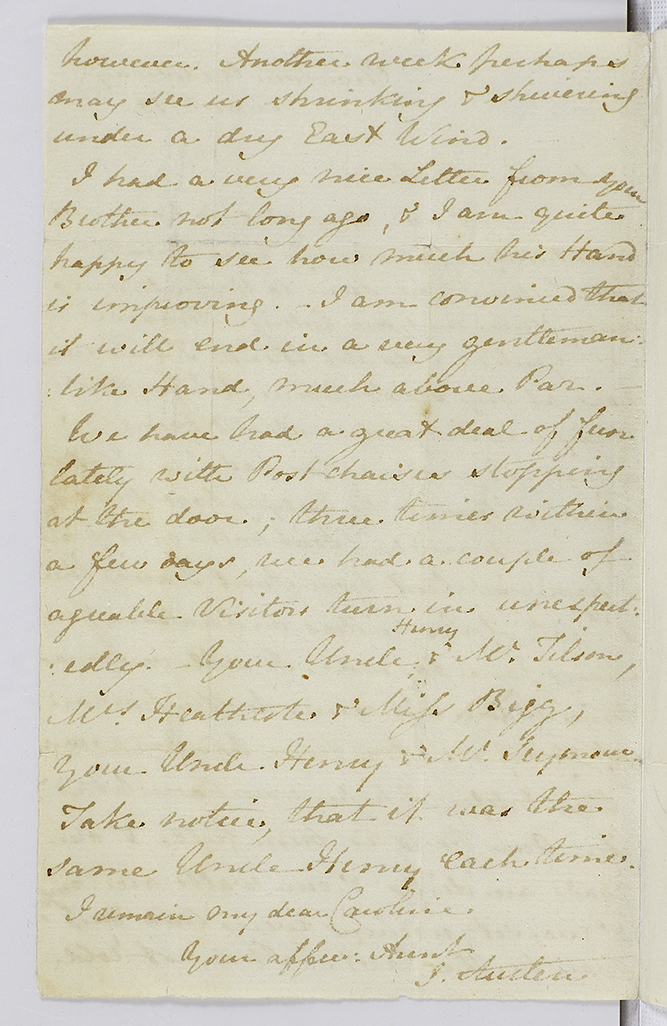 however. Another week perhaps
may see us shrinking & shivering
under a dry East Wind.
I had a very nice Letter from your
Brother not long ago, & I am quite
happy to see how much his Hand
is improving. - I am convinced that
it will end in a very gentleman-
:like Hand, much above Par. -
We have had a great deal of fun
lately with Post chaises stopping
at the door; three times within
a few days, we had a couple of
agreable Visitors turn in unexpect:
:edly. - Your Uncle Henry & Mr. Tilson,
Mrs. Heathcote & Miss Bigg,
Your Uncle Henry & Mr. Seymour.
Take notice, that it was the
same Uncle Henry each time.
I remain my dear Caroline.
Your affec: Aunt
J. Austen